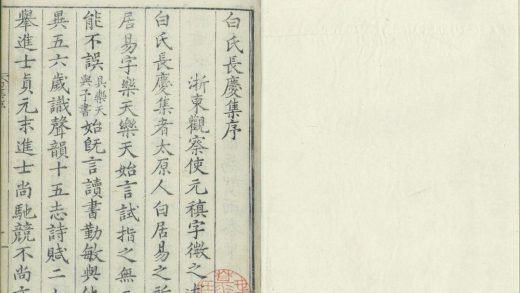 白氏長慶集序
浙東觀察使元稹字微之
白氏長慶集者太原人白居易之所
居易字樂天樂天始言試指之無
能不誤具樂天與予書始旣言讀書勤敏與他
異五六歲識聲韻十五志詩賦二
舉進士貞元末進士尚馳競不尚文